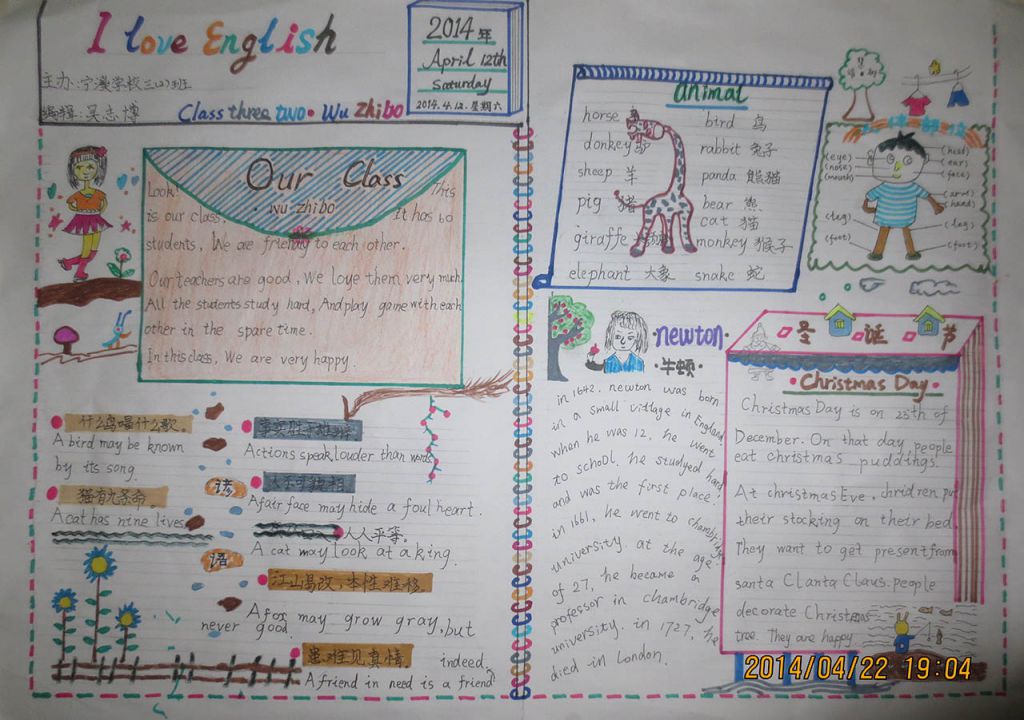 I love English
主办:宁溪学校三(2)班
编辑:吴志博
Class three two • Wu zhibo
2014年
April 12th
Saturday
2014.4.12.星期六
Our Class
wu zhibo
Look! This
is our class, It has 60
students, We are friendly to each other.
Our teachers are good, We love them very much.
All the students study hard, And play game with each
other in the spare time.
In this class, We are very happy.
什么鸟唱什么歌。
A bird may be known
by its song.
猫有九条命。
A cat has nine lives.
谚
语
Actions speak louder than words
A fair face may hide a foul heart.
人人平等。
A cat may look at a king.
江山易改,本性难移。
A fox may grow gray, but
never good.
患难见真情。
indeed.
A friend in need is a friend
animal
horse
bird 鸟
donkey 驴
rabbit 兔子
sheep 羊
panda 熊猫
pig 猪
bear 熊
cat 猫
giraffe
monkey 猴子
elephant 大象
snake 蛇
(eye)
(nose)
(mouth)
(head)
(ear)
(face)
(arm)
(hand)
(leg)
(foot)
(leg)
(foot)
newton
牛顿
in 1642. newton was born
in a small village in England.
when he was 12, he went
to school. he studyed hard
and was the first place.
in 1661, he went to chambridge
university. at the age
of 27, he became a
professor in chambridge
university. in 1727, he
died in London.
圣诞节
Christmas Day
Christmas Day is on 25th of
December. On that day, people
eat christmas puddings.
At christmas Eve, chridren put
their stocking on their bed.
They want to get present from
santa CLanta Claus. people
decorate Christmas
tree. They are happy
2014/04/22 19:04